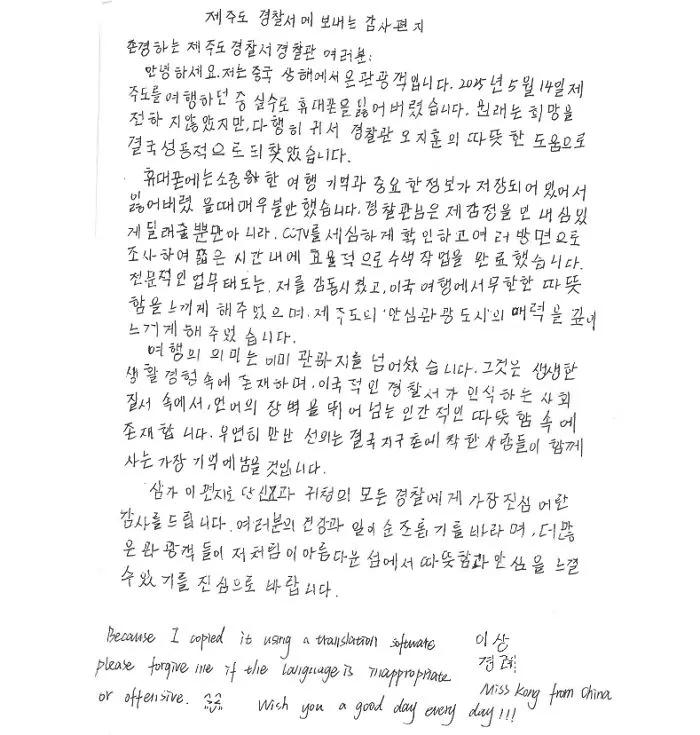 제주도 경찰서에 보내는 감사편지
존경하는 제주도 경찰서 경찰관 여러분:
안녕하세요. 저는 중국 상해에서 온 관광객입니다. 2025년 5월 14일 제
주도를 여행하던 중 실수로 휴대폰을 잃어버렸습니다. 원래는 희망을
전하 지않았지만, 다행히 귀서 경찰관 오지훈의 따뜻한 도움으로
결국성공적으로 되찾았습니다.
휴대폰에는소중한 여행 기억과 중요한정보가 저장되어 있어서
잃어버렸 을때매우불안했습니다. 경찰관님은 제감정을 인내심있
게 달래줄뿐만아니라. CCTV를 세심하게 확인하고여러 방면으로
조사하여 짧은 시간내에 효율적으로수색작업을 완료했습니다.
전문적인업무태도는. 저를 감동시켰고, 이국 여행에서무한한 따뜻
함을느끼게 해주었으며. 제주도의 '안심관광도시'의 매력을 깊이
느끼게해주었 습니다.
여행의 의미는 이미 관광지를 넘어섰 습니다. 그것은 생생한
생활경험속에존재하며, 이국적인 경찰서가 인식하는 사회
질서 속에서, 언어의 장벽을뛰어넘는인간적인 따뜻함 속에
존재합니다. 우연히 만난 선의는 결국지구촌에착한사람들이 함께
사는가장 기억에남을것입니다.
삼가 이 편지로 당신과 귀청의 모든 경찰에게 가장진심 어린
감사를드립니다. 여러분의 건강과 일이순조롭기를바라며, 더많
은관광객들이 저처럼이아름다운섬에서따뜻함과안심을 느낄
수있기를진심으로 바랍니다.
Because I copied it using a translation software 이상
please forgive me if the language is inappropriate 경례
or offensive. Wish you a good day every day!!! Miss Kong from China